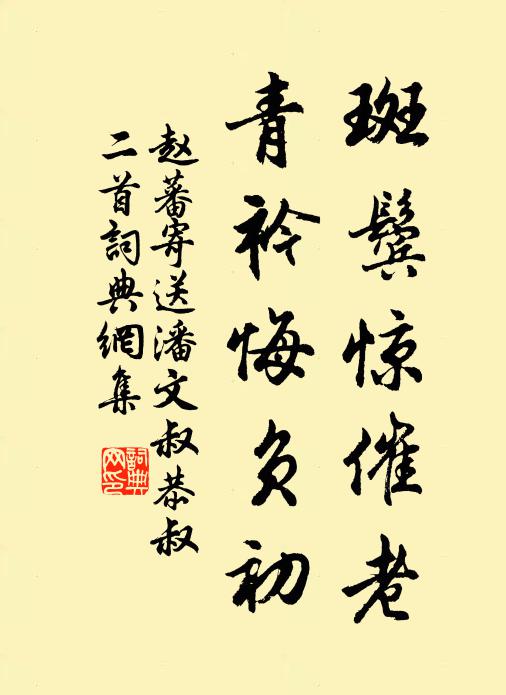 斑鬓惊催老
青衿悔负初
赵蕃寄送潘文叔恭叔
二首詞典網集
詞典网印